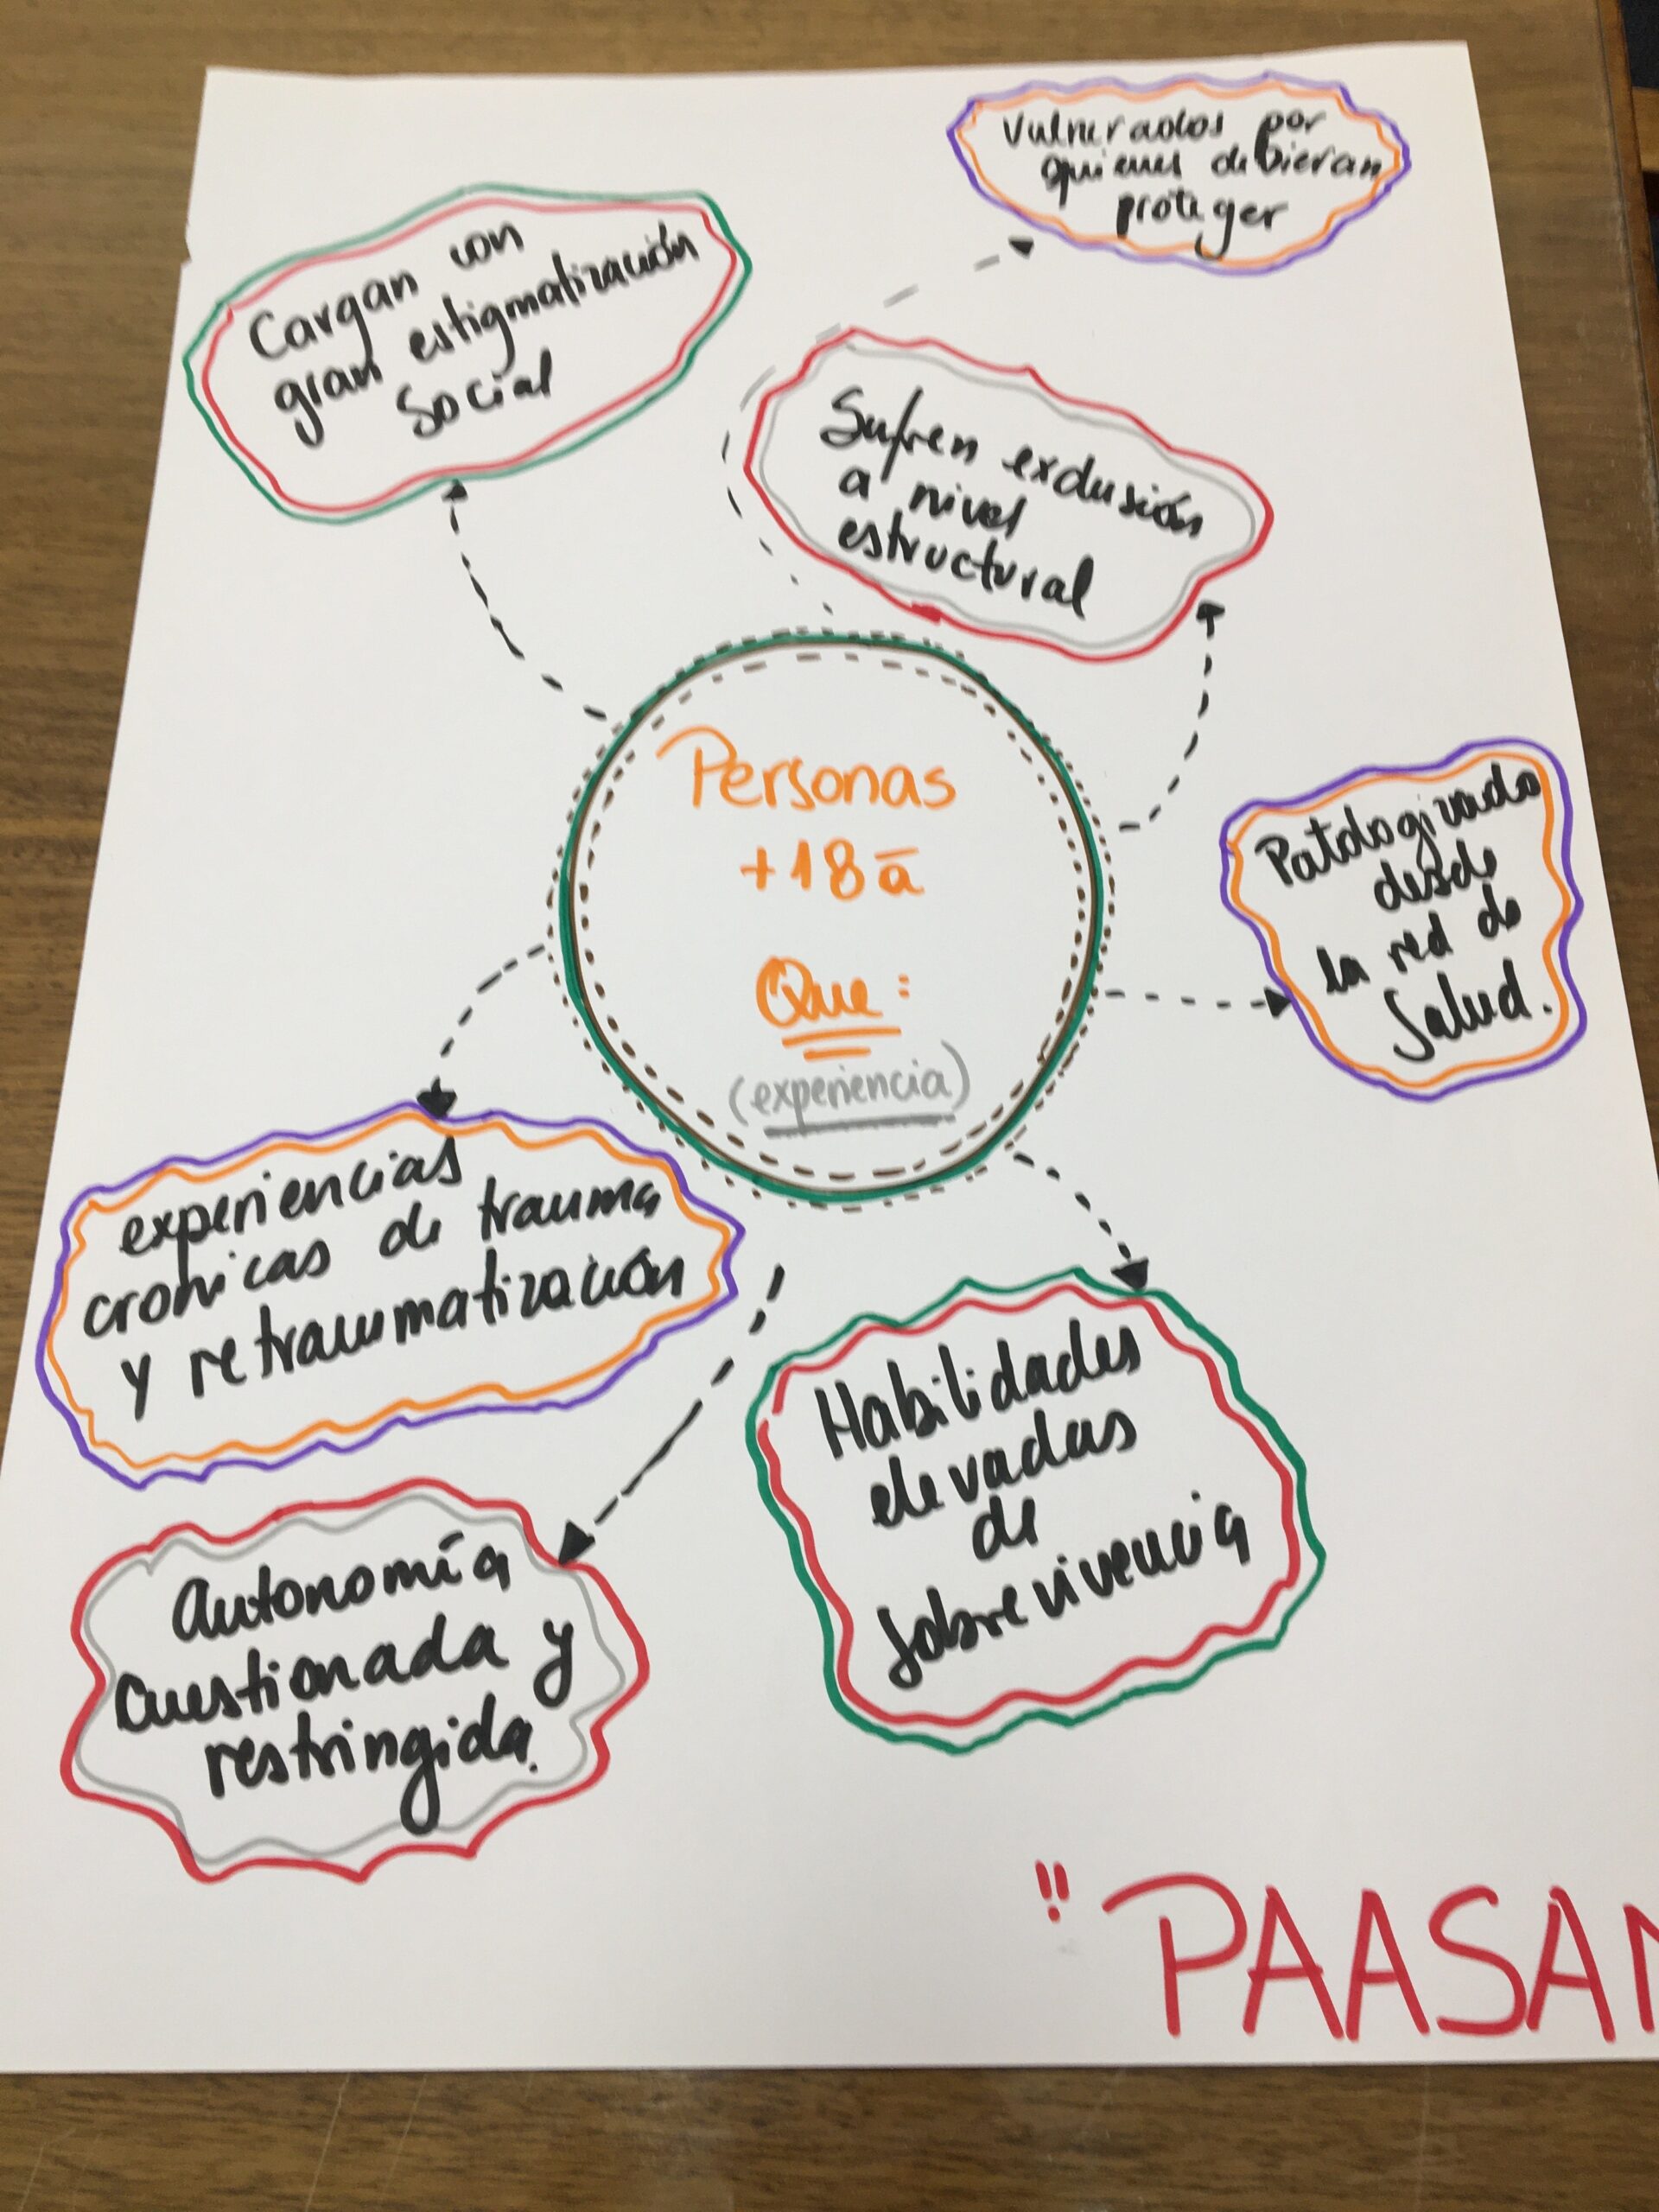 Vulnerados por
quienes debieran
proteger
Cargan con
gran estigmatización
Social
Sufren exclusión
a nivel
estructural
Personas
+18 a
Que:
(experiencia)
Patologizado
desde
la red de
Salud.
experiencias
cronicas de trauma
y retraumatización
Habilidades
elevadas
de
Sobrevivencia
Autonomía
Cuestionada y
restringida.
"PAASAN